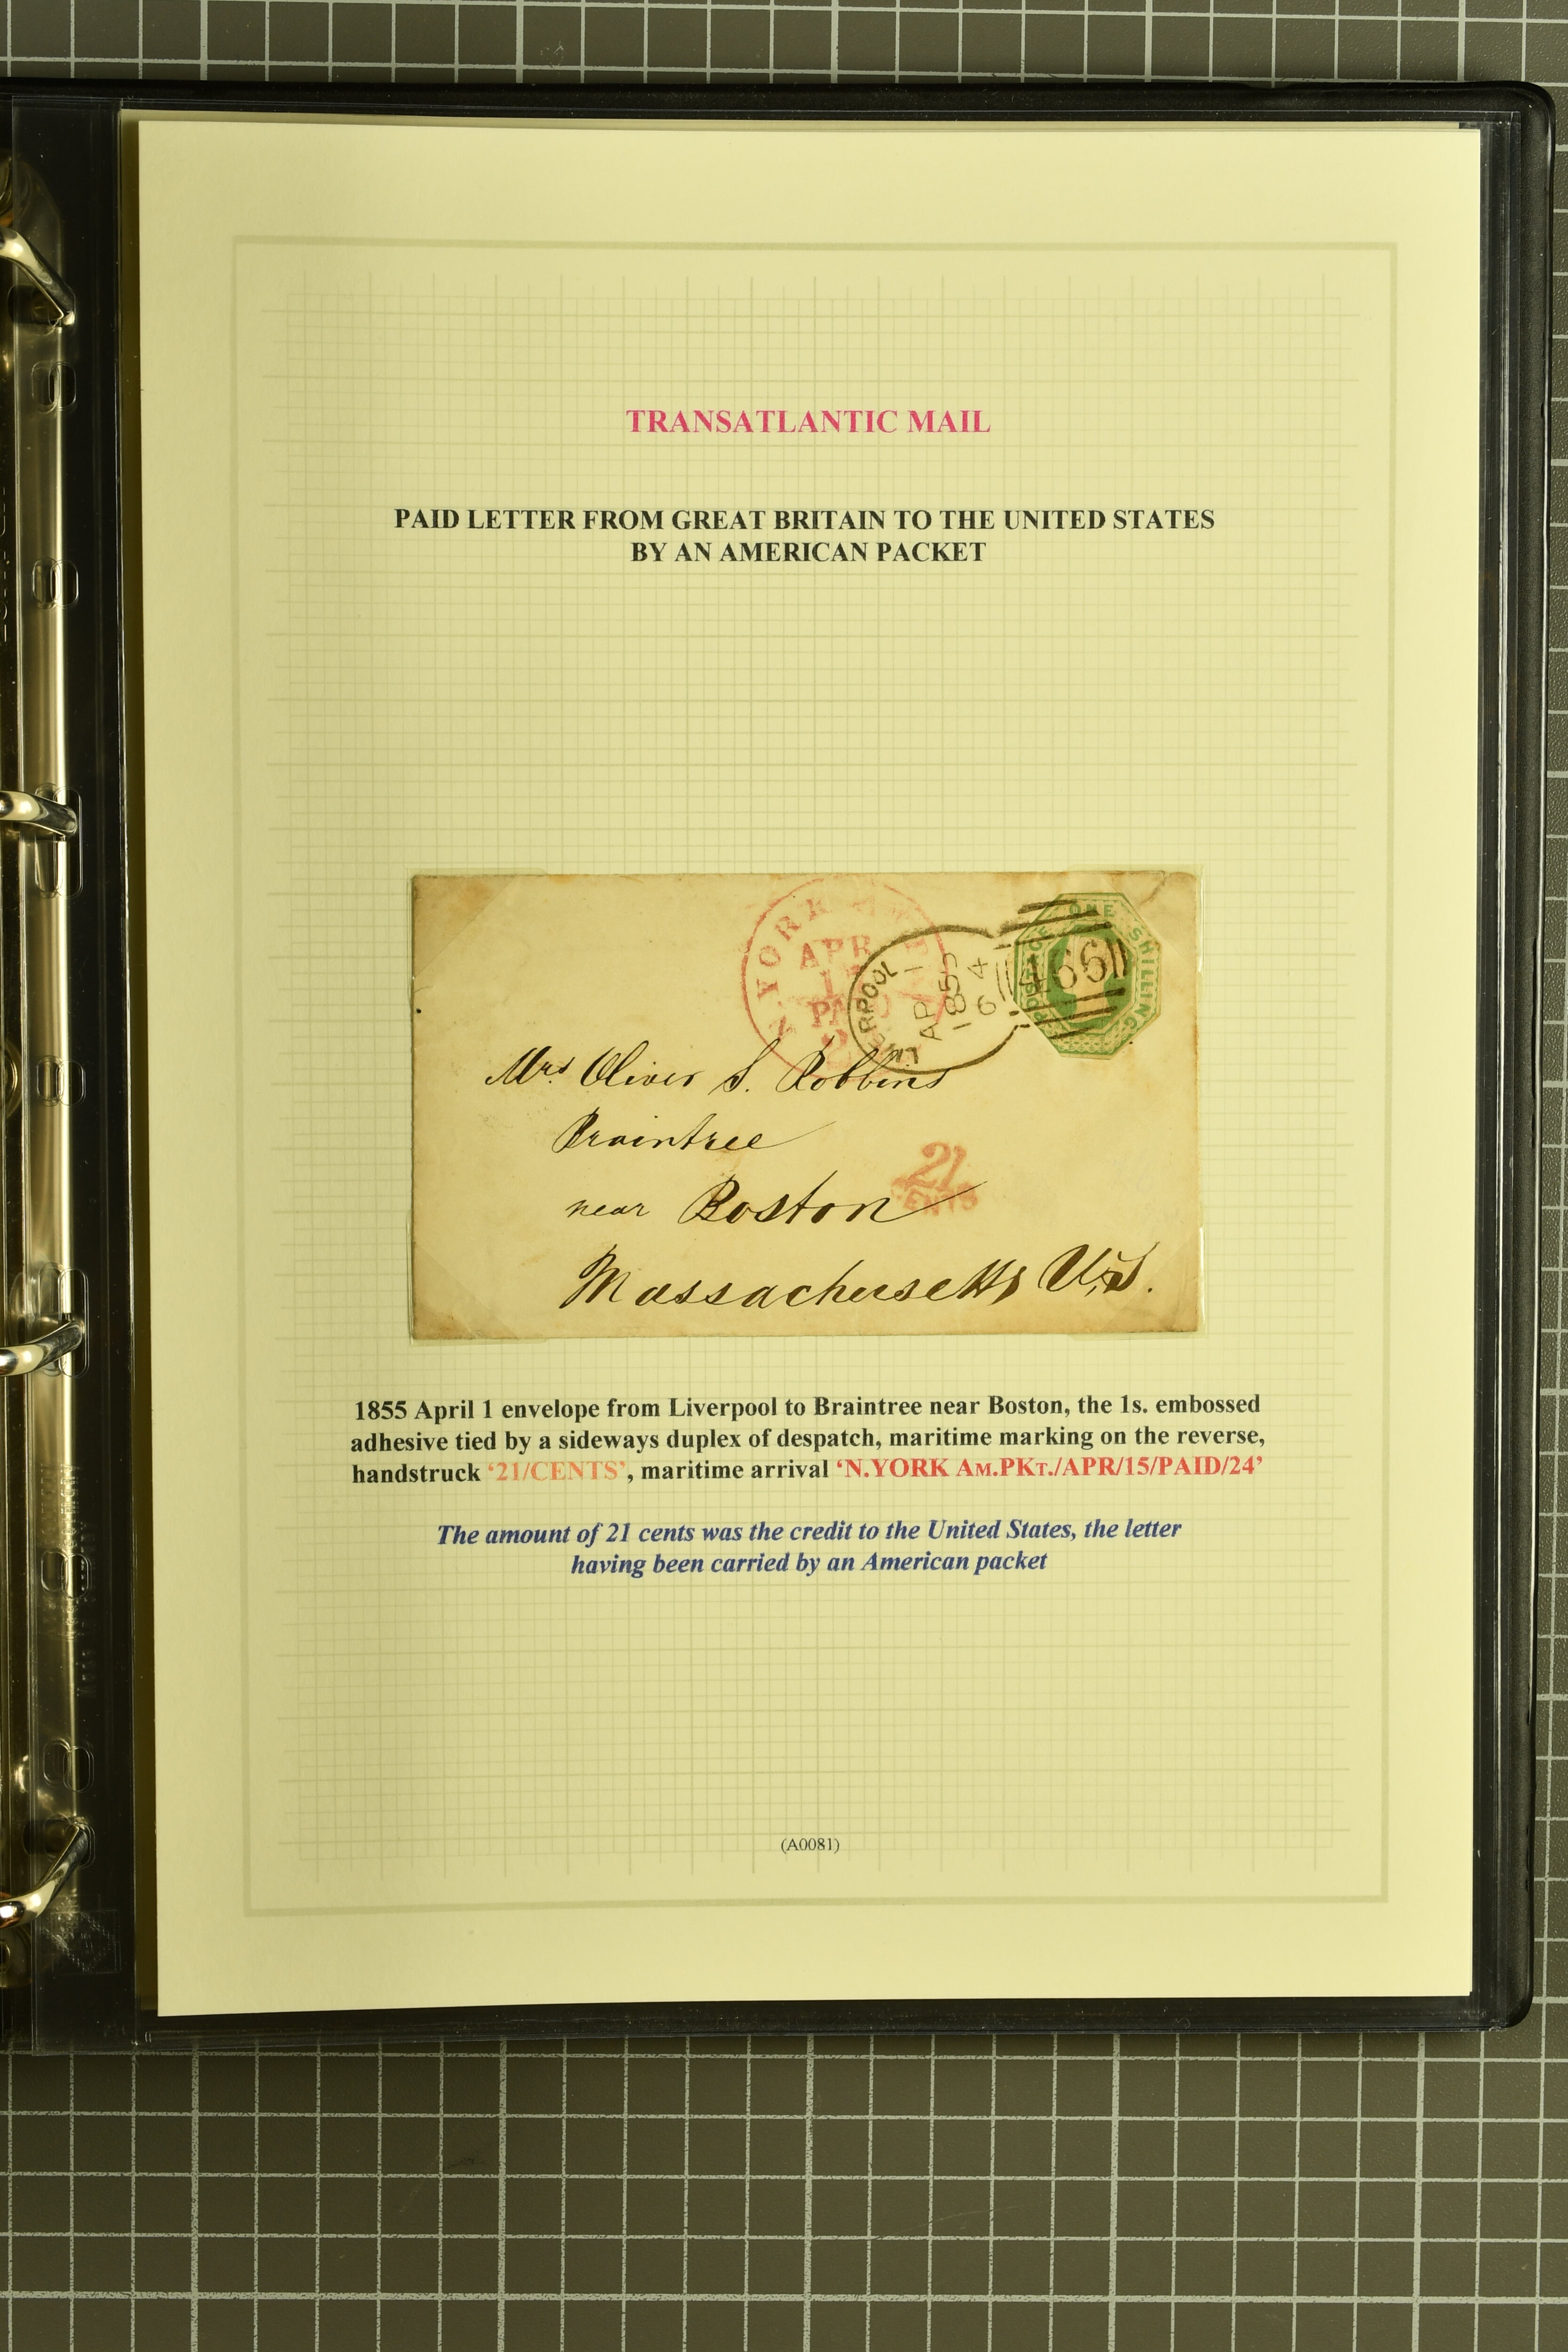 TRANSATLANTIC MAIL
PAID LETTER FROM GREAT BRITAIN TO THE UNITED STATES
BY AN AMERICAN PACKET
N. YORK
APR
PAID
LIVERPOOL
AP 1
1855
64
466
POSTAGE ONE SHILLING
Mrs. Oliver S. Robbins
Braintree
near Boston
21
CENTS
Massachusetts U.S.
1855 April 1 envelope from Liverpool to Braintree near Boston, the 1s. embossed
adhesive tied by a sideways duplex of despatch, maritime marking on the reverse,
handstruck ‘21/CENTS’, maritime arrival ‘N.YORK AM.PKT./APR/15/PAID/24’
The amount of 21 cents was the credit to the United States, the letter
having been carried by an American packet
(A0081)